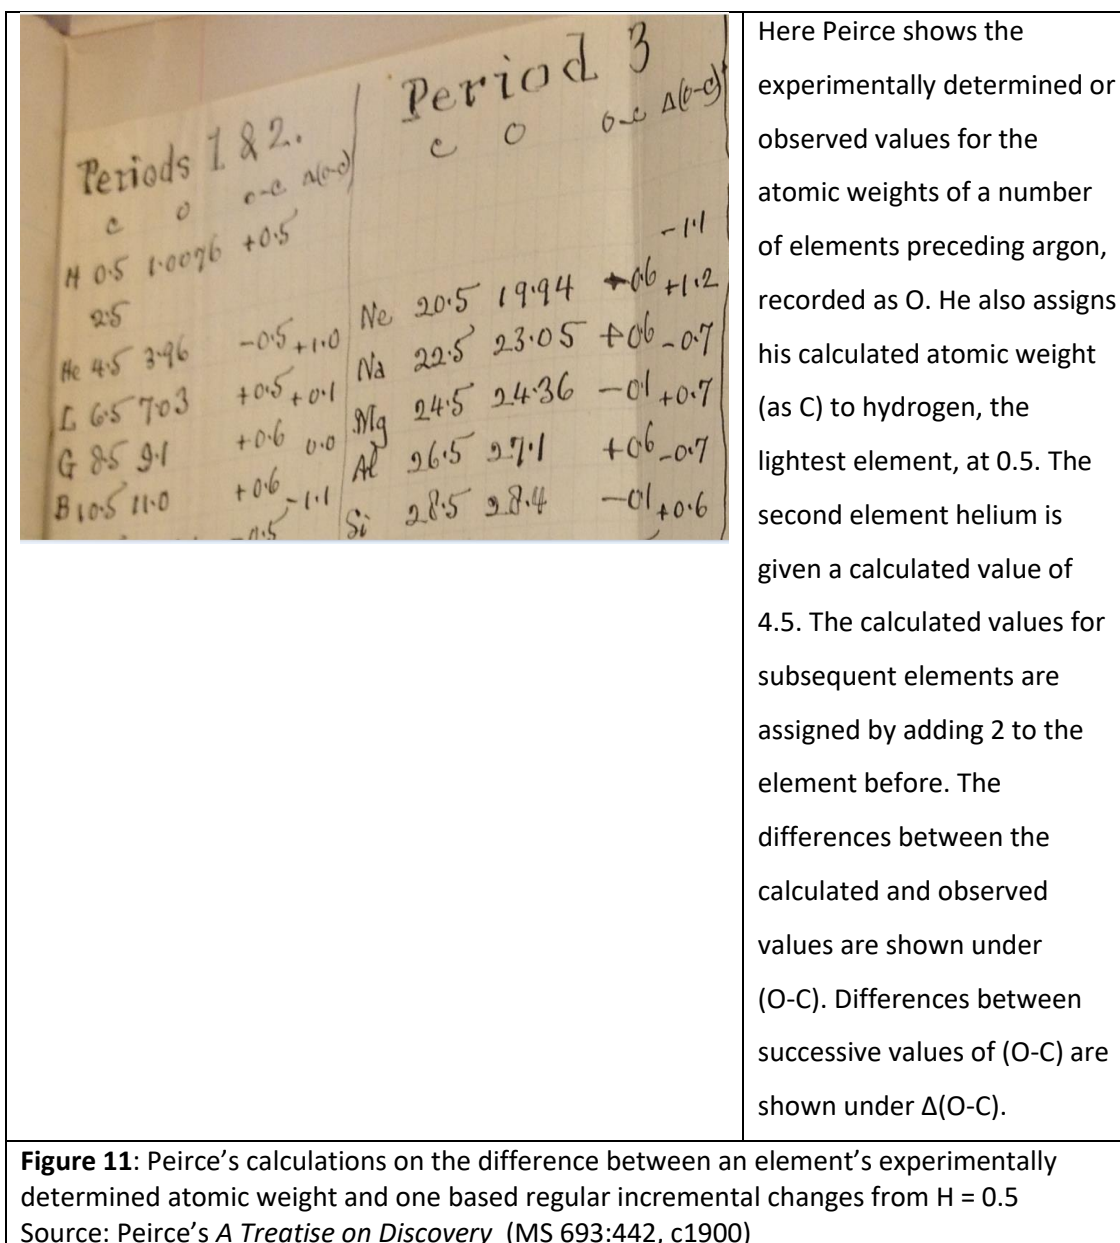 Periods 1 & 2.
c O o-c Δ(o-c)
H 0·5 1·0076 +0·5
2·5
He 4·5 3·96 -0·5 +1·0
L 6·5 7·03 +0·5 +0·1
G 8·5 9·1 +0·6 0·0
B 10·5 11·0 +0·6 -1·1
-0·5
Period 3
c O o-c Δ(o-c)
-1·1
Ne 20·5 19·94 -0·6 +1·2
Na 22·5 23·05 +0·6 -0·7
Mg 24·5 24·36 -0·1 +0·7
Al 26·5 27·1 +0·6 -0·7
Si 28·5 28·4 -0·1 +0·6
Here Peirce shows the
experimentally determined or
observed values for the
atomic weights of a number
of elements preceding argon,
recorded as O. He also assigns
his calculated atomic weight
(as C) to hydrogen, the
lightest element, at 0.5. The
second element helium is
given a calculated value of
4.5. The calculated values for
subsequent elements are
assigned by adding 2 to the
element before. The
differences between the
calculated and observed
values are shown under
(O-C). Differences between
successive values of (O-C) are
shown under Δ(O-C).
Figure 11: Peirce’s calculations on the difference between an element’s experimentally
determined atomic weight and one based regular incremental changes from H = 0.5
Source: Peirce’s A Treatise on Discovery (MS 693:442, c1900)